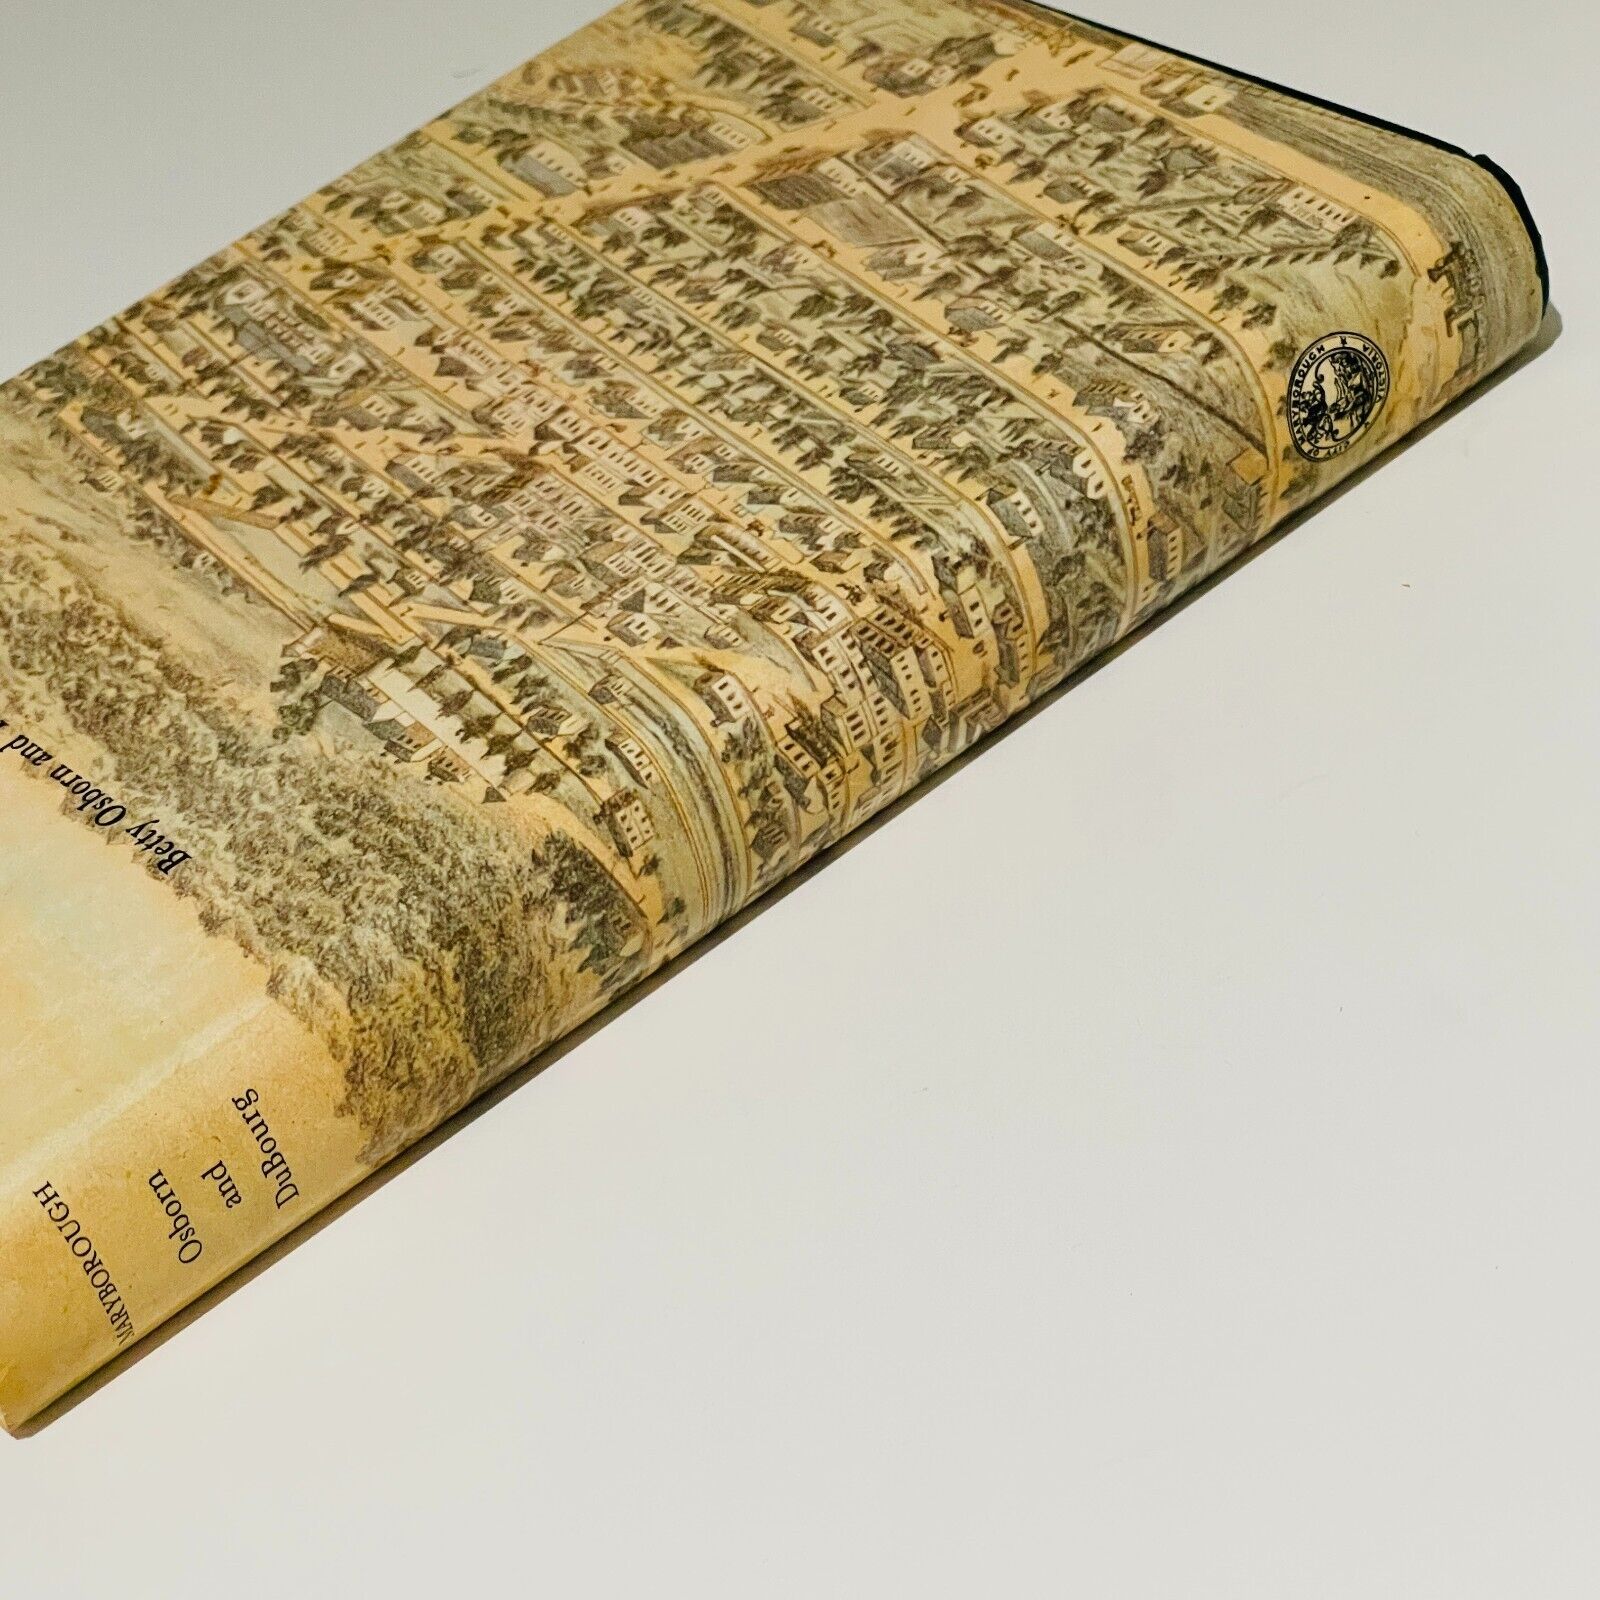 MARYBOROUGH
Osborn
and
DuBourg
Betty Osborn and
CITY OF MARYBOROUGH
VICTORIA